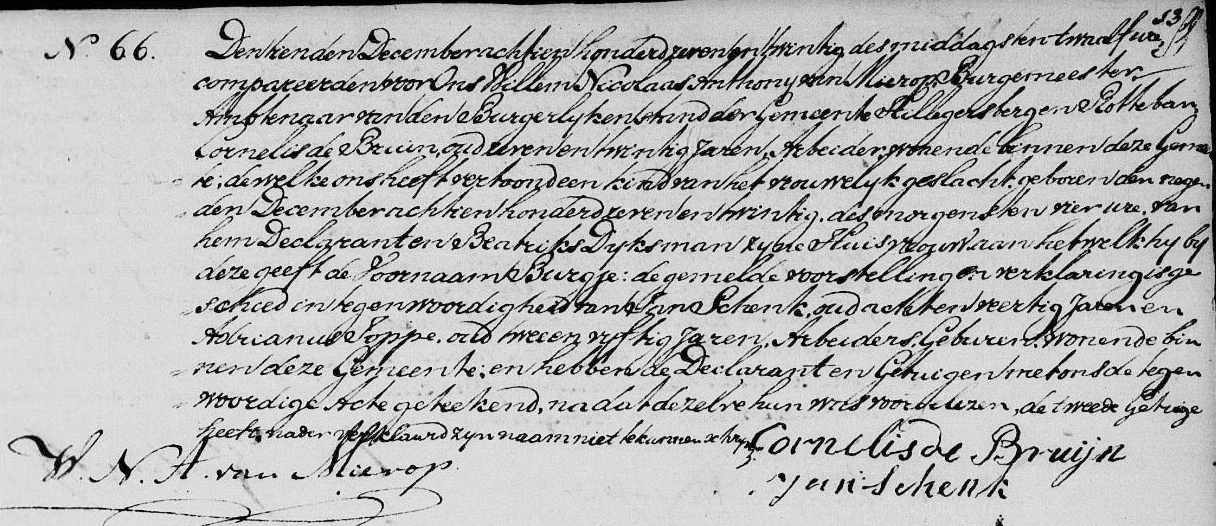 53
No 66. Den tienden December achtien honderd zeven en twintig des middags ten twaalf ure
compareerden voor Ons Willem Nicolaas Anthony van Mierop Burgemeester
Ambtenaar van den Burgerlyken stand der Gemeente Hillegersberg en Rotteban
Cornelis de Bruin, oud zeven en twintig Jaren, Arbeider, wonende binnen deze Gemeen
te; dewelke ons heeft vertoond een kind van het vrouwelyk geslacht, geboren den negen
den December achtien honderd zeven en twintig, des morgens ten vier ure, van
hem Declarant en Beatriks Dyksman zyne Huisvrouw aan het welk hy by
deze geeft de Voornaam Burgje: de gemelde voorstelling en verklaring is ge
schied in tegenwoordigheid van Jan Schenk, oud acht en veertig Jaren en
Adrianus Poppe, oud twee en vyftig Jaren, Arbeiders, Geburen, wonende bin
nen deze Gemeente; en hebben de Declarant en Getuigen met ons de tegen
woordige Acte geteekend, na dat dezelve hun was voorgelezen, de tweede Getuige
heeft nader verklaard zyn naam niet te kunnen schryven
Cornelis de Bruijn
W. N. A. van Mierop.
Jan Schenk